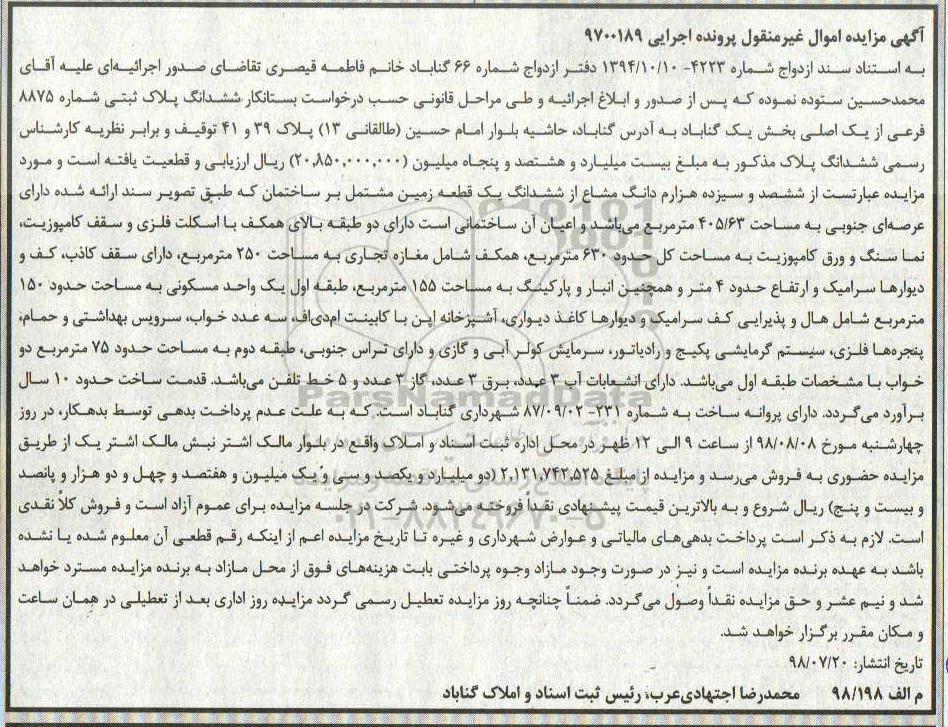 آگهی مزایده اموال غیرمنقول پرونده اجرایی ۹۷۰۰۱۸۹
به استناد سند ازدواج شماره ۴۲۲۳- ۱۳۹۴/۱۰/۱۰ دفتر ازدواج شماره ۶۶ گناباد خانم فاطمه قیصری تقاضای صدور اجرائیه‌ای علیه آقای
محمدحسین ستوده نموده که پس از صدور و ابلاغ اجرائیه و طی مراحل قانونی حسب درخواست بستانکار ششدانگ پلاک ثبتی شماره ۸۸۷۵
فرعی از یک اصلی بخش یک گناباد به آدرس گناباد، حاشیه بلوار امام حسین (طالقانی ۱۳) پلاک ۳۹ و ۴۱ توقیف و برابر نظریه کارشناس
رسمی ششدانگ پلاک مذکور به مبلغ بیست میلیارد و هشتصد و پنجاه میلیون (۲۰,۸۵۰,۰۰۰,۰۰۰) ریال ارزیابی و قطعیت یافته است و مورد
مزایده عبارتست از ششصد و سیزده هزارم دانگ مشاع از ششدانگ یک قطعه زمین مشتمل بر ساختمان که طبق تصویر سند ارائه شده دارای
عرصه‌ای جنوبی به مساحت ۴۰۵/۶۳ مترمربع می‌باشد و اعیان آن ساختمانی است دارای دو طبقه بالای همکف با اسکلت فلزی و سقف کامپوزیت،
نما سنگ و ورق کامپوزیت به مساحت کل حدود ۶۳۰ مترمربع، همکف شامل مغازه تجاری به مساحت ۲۵۰ مترمربع، دارای سقف کاذب، کف و
دیوارها سرامیک و ارتفاع حدود ۴ متر و همچنین انبار و پارکینگ به مساحت ۱۵۵ مترمربع، طبقه اول یک واحد مسکونی به مساحت حدود ۱۵۰
مترمربع شامل هال و پذیرایی کف سرامیک و دیوارها کاغذ دیواری، آشپزخانه اپن با کابینت ام‌دی‌اف، سه عدد خواب، سرویس بهداشتی و حمام،
پنجره‌ها فلزی، سیستم گرمایشی پکیج و رادیاتور، سرمایش کولر آبی و گازی و دارای تراس جنوبی، طبقه دوم به مساحت حدود ۷۵ مترمربع دو
خواب با مشخصات طبقه اول می‌باشد. دارای انشعابات آب ۳ عدد، برق ۳ عدد، گاز ۳ عدد و ۵ خط تلفن می‌باشد. قدمت ساخت حدود ۱۰ سال
برآورد می‌گردد. دارای پروانه ساخت به شماره ۲۳۱- ۸۷/۰۹/۰۲ شهرداری گناباد است. که به علت عدم پرداخت بدهی توسط بدهکار، در روز
چهارشنبه مورخ ۹۸/۰۸/۰۸ از ساعت ۹ الی ۱۲ ظهر در محل اداره ثبت اسناد و املاک واقع در بلوار مالک اشتر نبش مالک اشتر یک از طریق
مزایده حضوری به فروش می‌رسد و مزایده از مبلغ ۲,۱۳۱,۷۴۲,۵۲۵ (دو میلیارد و یکصد و سی و یک میلیون و هفتصد و چهل و دو هزار و پانصد
و بیست و پنج) ریال شروع و به بالاترین قیمت پیشنهادی نقداً فروخته می‌شود. شرکت در جلسه مزایده برای عموم آزاد است و فروش کلاً نقدی
است. لازم به ذکر است پرداخت بدهی‌های مالیاتی و عوارض شهرداری و غیره تا تاریخ مزایده اعم از اینکه رقم قطعی آن معلوم شده یا نشده
باشد به عهده برنده مزایده است و نیز در صورت وجود مازاد وجوه پرداختی بابت هزینه‌های فوق از محل مازاد به برنده مزایده مسترد خواهد
شد و نیم عشر و حق مزایده نقداً وصول می‌گردد. ضمناً چنانچه روز مزایده تعطیل رسمی گردد مزایده روز اداری بعد از تعطیلی در همان ساعت
و مکان مقرر برگزار خواهد شد.
تاریخ انتشار: ۹۸/۰۷/۲۰
م الف ۹۸/۱۹۸ محمدرضا اجتهادی‌عرب، رئیس ثبت اسناد و املاک گناباد
ParsNamadData
۰۲۱-۸۸۳۴۹۶۷۰-۵